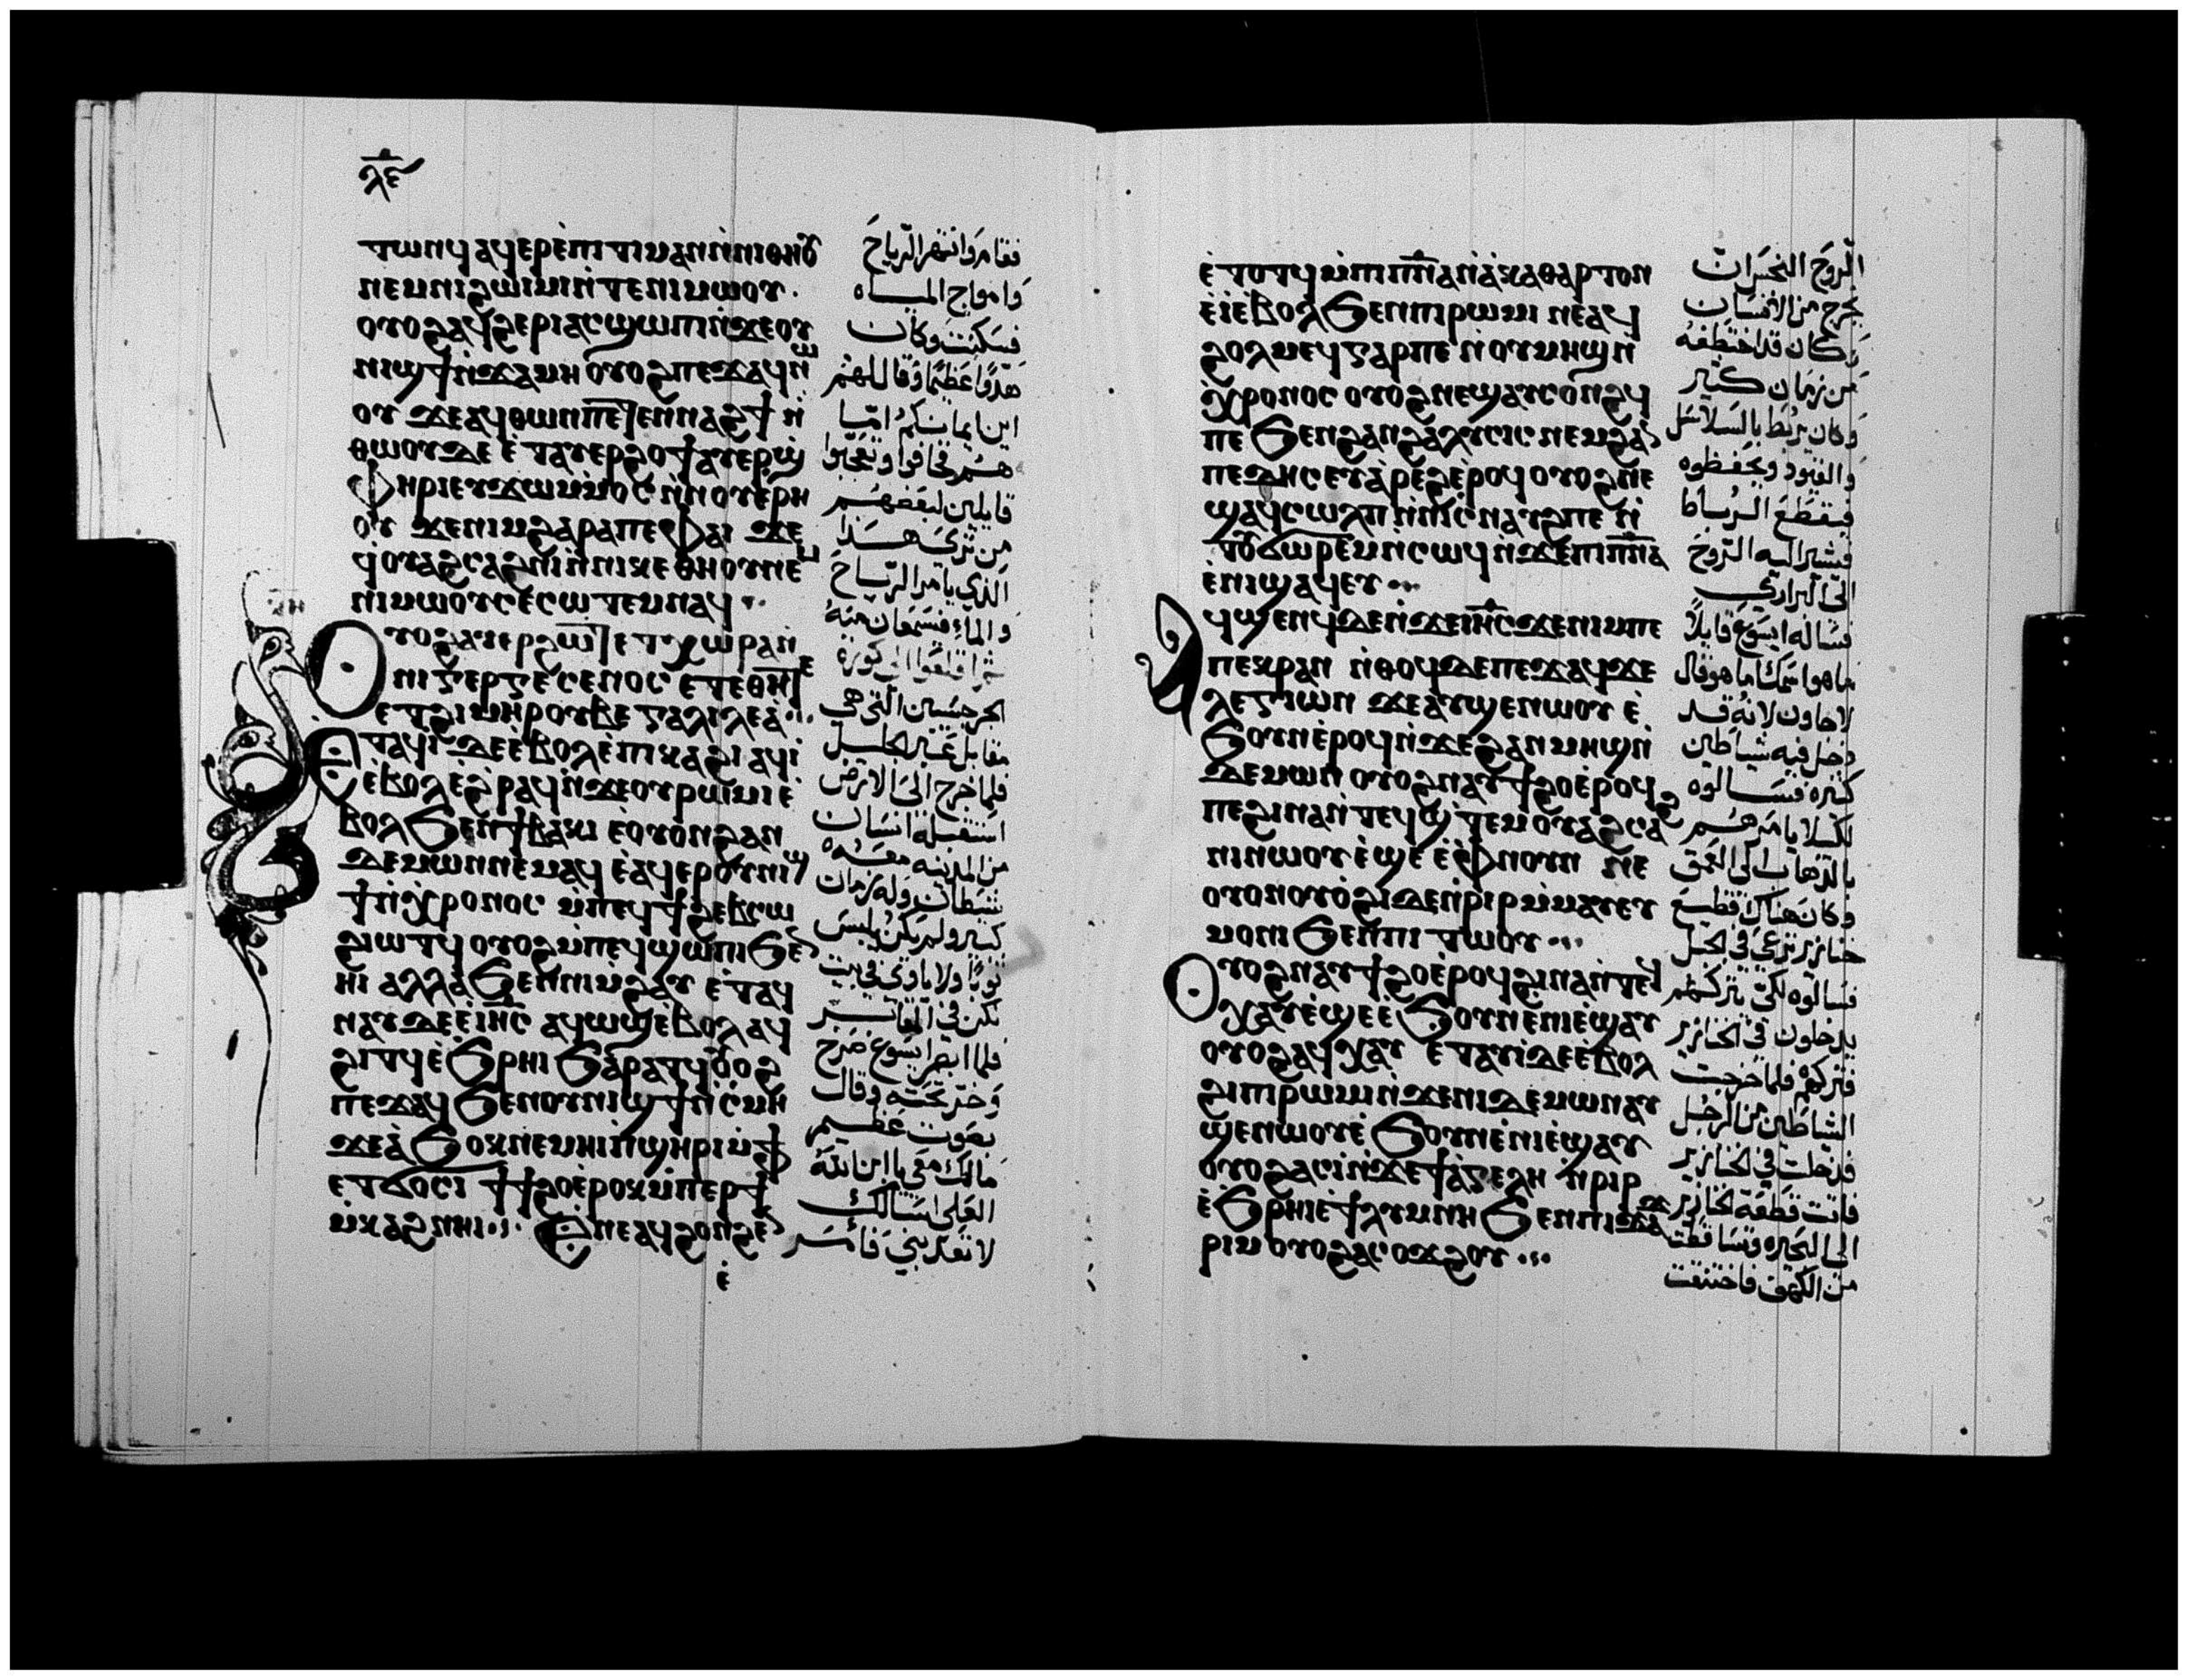 ⲗ̅ⲉ̅
ⲧⲱⲛϥ ⲁϥⲉⲣⲉ̀ⲡⲓⲧⲓⲙⲁⲛ ⲛ̀ⲛⲓⲑⲏⲟⲩ
ⲛⲉⲙ ⲛⲓϩⲱⲓⲙⲓ ⲛ̀ⲧⲉ ⲛⲓⲙⲱⲟⲩ .
ⲟⲩⲟϩ ⲁⲩϩⲉⲣⲓ ⲁⲥϣⲱⲡⲓ ⲛ̀ϫⲉ ⲟⲩ
ⲛⲓϣϯ ⲛ̀ϫⲁⲙⲏ ⲟⲩⲟϩ ⲡⲉϫⲁϥ ⲛⲱ
ⲟⲩ ϫⲉ ⲁϥⲑⲱⲛ ⲡⲉⲧⲉⲛⲛⲁϩϯ ⲛ̀
ⲑⲱⲟⲩ ⲇⲉ ⲉ̀ⲧⲁⲩⲉⲣϩⲟϯ ⲁⲩⲉⲣϣ̀
ⲫⲏⲣⲓ ⲉⲩϫⲱ ⲙ̀ⲙⲟⲥ ⲛ̀ⲛⲟⲩⲉⲣⲏ
ⲟⲩ ϫⲉ ⲛⲓⲙ ϩⲁⲣⲁ ⲡⲉ ⲫⲁⲓ ϫⲉ
ϥ̀ⲟⲩⲁϩⲥⲁϩⲛⲓ ⲛ̀ⲛⲓⲕⲉⲑⲏⲟⲩ ⲛⲉⲙ
ⲛⲓⲙⲱⲟⲩ ⲥⲉⲥⲱⲧⲉⲙ ⲛⲁϥ ..
ⲟⲩⲟϩ ⲁⲩⲉⲣϩⲱⲧ ⲉ̀ⲧⲭⲱⲣⲁ ⲛ̀
ⲛⲓⲅⲉⲣⲅⲉⲥⲉⲛⲟⲥ ⲉⲧⲉ ⲑⲏ ⲧⲉ
ⲉⲧϩⲓⲙⲏⲣ ⲟⲩⲃⲉ ⲅⲁⲗⲓⲗⲉⲁ̀ ...
ⲉⲧⲁϥⲓ̀ ⲇⲉ ⲉ̀ⲃⲟⲗ ⲉ̀ⲡⲓⲕⲁϩⲓ ⲁϥⲓ̀
ⲉ̀ⲃⲟⲗ ⲉϩⲣⲁϥ ⲛ̀ϫⲉ ⲟⲩⲣⲱⲙⲓ ⲉ̀
ⲃⲟⲗ ϧⲉⲛ ϯⲃⲁⲕⲓ ⲉ̀ⲟⲩⲟⲛ ϩⲁⲛ
ⲇⲉⲙⲱⲛ ⲛⲉⲙⲁϥ ⲉ̀ⲁϥⲉⲣ ⲟⲩⲛⲓϣ
ϯ ⲛ̀ⲭⲣⲟⲛⲟⲥ ⲙ̀ⲡⲉϥϯϩⲉⲃⲥⲱ
ϩⲓⲱⲧϥ ⲟⲩⲟϩ ⲙ̀ⲡⲉϥϣⲱⲡⲓ ϧⲉⲛ
ⲏⲓ ⲁⲗⲗⲁ̀ ϧⲉⲛ ⲛⲓⲙ̀ϩⲁⲩ ⲉ̀ⲧⲁϥ
ⲛⲁⲩ ⲇⲉ ⲉ̀ⲓⲏ̅ⲥ̅ ⲁϥⲱϣ ⲉ̀ⲃⲟⲗ ⲁϥ
ϩⲓⲧϥ ⲉ̀ϧⲣⲏⲓ ϧⲁⲣⲁⲧϥ ⲟⲩⲟϩ
ⲡⲉϫⲁϥ ϧⲉⲛ ⲟⲩⲛⲓϣϯ ⲛ̀ⲥ̀ⲙⲏ
ϫⲉ ⲁ̀ϧⲟⲕ ⲛⲉⲙⲏⲓ ⲡ̀ϣⲏⲣⲓ ⲙ̀ⲫϯ
ⲉⲧϭⲟⲥⲓ ϯϯϩⲟ ⲉ̀ⲣⲟⲕ ⲙ̀ⲡⲉⲣϯ
ⲙ̀ⲕⲁϩ ⲛⲏⲓ ... ⲉ̀ⲛⲉⲁϥϩⲟⲛϩⲉⲛ
ⲉ̀
فقام وانتهر الرياح
وامواج المياه
فسكنت وكان
هدوا عظيما وقال لهم
اين ايمانكم اما
هم فخافوا وتعجبوا
قايلين لبعضهم
من ترى هذا
الذي يامر الرياح
والماء فيسمعان منه
ثم اقلعوا الى كورة
الجرجسيين التي هي
مقابل عبر الجليل
فلما خرج الى الارض
استقبله انسان
من المدينه معه
شيطان وله زمان
كبير ولم يكن يلبس
ثوبا ولا ياوي في بيت
لكن في المقابر
فلما ابصر يسوع صرخ
وخر تحته وقال
بصوت عظيم
مالك معي يا ابن الله
العلي اسالك
لا تعذبني فامر
ⲉ̀ⲧⲟⲧϥ ⲙ̀ⲡⲓⲡ̅ⲛ̅ⲁ̅ ⲛ̀ⲁ̀ⲕⲁⲑⲁⲣⲧⲟⲛ
ⲉ̀ⲓ̀ ⲉ̀ⲃⲟⲗ ϧⲉⲛ ⲡⲓⲣⲱⲙⲓ ⲛⲉⲁϥ
ϩⲟⲗⲙⲉϥ ⲅⲁⲣ ⲡⲉ ⲛ̀ⲟⲩⲙⲏϣ ⲛ̀
ⲭ̀ⲣⲟⲛⲟⲥ ⲟⲩⲟϩ ⲛⲉϣⲁⲩⲥⲟⲛϩϥ
ⲡⲉ ϧⲉⲛ ϩⲁⲛϩⲁⲗⲩⲥⲓⲥ ⲛⲉⲙ ϩⲁⲛ
ⲡⲉⲇⲏⲥ ⲉⲩⲁ̀ⲣⲉϩ ⲉ̀ⲣⲟϥ ⲟⲩⲟϩ ⲛⲉ
ϣⲁϥⲥⲱⲗⲡ ⲛ̀ⲛⲓⲥ̀ⲛⲁⲩϩ ⲡⲉ ⲛ̀
ⲧⲟⲩϭⲱⲣⲉⲙ ⲛ̀ⲥⲱϥ ⲛ̀ϫⲉ ⲡⲓⲡ̅ⲛ̅ⲁ̅
ⲉ̀ⲛⲓϣⲁϥⲉⲩ ...
ⲁϥϣⲉⲛϥ ⲇⲉ ⲛ̀ϫⲉ ⲓⲏ̅ⲥ̅ ϫⲉ ⲛⲓⲙ ⲡⲉ
ⲡⲉⲕⲣⲁⲛ ⲛ̀ⲑⲟϥ ⲇⲉ ⲡⲉϫⲁϥ ϫⲉ
ⲗⲉⲅⲓⲱⲛ ϫⲉ ⲁⲩϣⲉⲛⲱⲟⲩ ⲉ̀
ϧⲟⲩⲛ ⲉ̀ⲣⲟϥ ⲛ̀ϫⲉ ϩⲁⲛⲙⲏϣ ⲛ̀
ⲇⲉⲙⲱⲛ ⲟⲩⲟϩ ⲛⲁⲩϯϩⲟ ⲉ̀ⲣⲟϥ
ⲡⲉ ϩⲓⲛⲁ ⲛ̀ⲧⲉϥϣ̀ⲧⲉⲙⲟⲩⲁϩⲥⲁϩ
ⲛⲓ ⲛⲱⲟⲩ ⲉ̀ϣⲉ ⲉ̀ⲫⲛⲟⲩⲛ ⲛⲉ
ⲟⲩⲟⲛ ⲟⲩⲟ̀ϩⲓ ⲇⲉ ⲛ̀ⲣⲓⲣ ⲙ̀ⲙⲁⲩ ⲉⲩ
ⲙⲟⲛⲓ ϧⲉⲛ ⲡⲓⲧⲱⲟⲩ ...
ⲟⲩⲟϩ ⲛⲁⲩϯϩⲟ ⲉ̀ⲣⲟϥ ϩⲓⲛⲁ ⲛ̀ⲧⲉϥ
ⲭⲁⲩ ⲉ̀ϣⲉ ⲉ̀ϧⲟⲩⲛ ⲉ̀ⲛⲓⲉ̀ϣⲁⲩ
ⲟⲩⲟϩ ⲁϥⲭⲁⲩ ⲉ̀ⲧⲁⲩⲓ̀ ⲇⲉ ⲉ̀ⲃⲟⲗ
ϩⲓ ⲡⲓⲣⲱⲙⲓ ⲛ̀ϫⲉ ⲛⲓⲇⲉⲙⲱⲛ ⲁⲩ
ϣⲉⲛⲱⲟⲩ ⲉ̀ϧⲟⲩⲛ ⲉ̀ⲛⲓⲉ̀ϣⲁⲩ
ⲟⲩⲟϩ ⲁⲥⲓ̀ ⲛ̀ϫⲉ ϯⲁ̀ⲅⲉⲗⲏ ⲛ̀ⲣⲓⲣ
ⲉ̀ϧⲣⲏⲓ ⲉ̀ϯⲗⲩⲙⲛⲏ ϧⲉⲛ ⲡⲓϫⲁϫ
ⲣⲓⲙ ⲟⲩⲟϩ ⲁⲥⲟϫϩⲟⲩ ...
الروح النجس ان
يخرج من الانسان
وكان قد اختطفه
من زمان كثير
وكان يربط بالسلاسل
والقيود ويحفظوه
فيقطع الرباط
فيشير اليه الروح
الى البراري
فساله ايسوع قايلا
ما هو اسمك اما هو فقال
لاجاون لانه قد
دخل فيه شياطين
كثيره فسالوه
لكيلا يامرهم
بالذهاب الى العمق
وكان هناك قطيع
خنازير ترعي في الجبل
فسالوه لكي يتركهم
يدخلون في الخنازير
فتركهم فلما خرجت
الشياطين من الرجل
فدخلت في الخنازير
فاتت قطعة الخنازير
الى البحيره وتساقطت
من الكهف فاختنقت